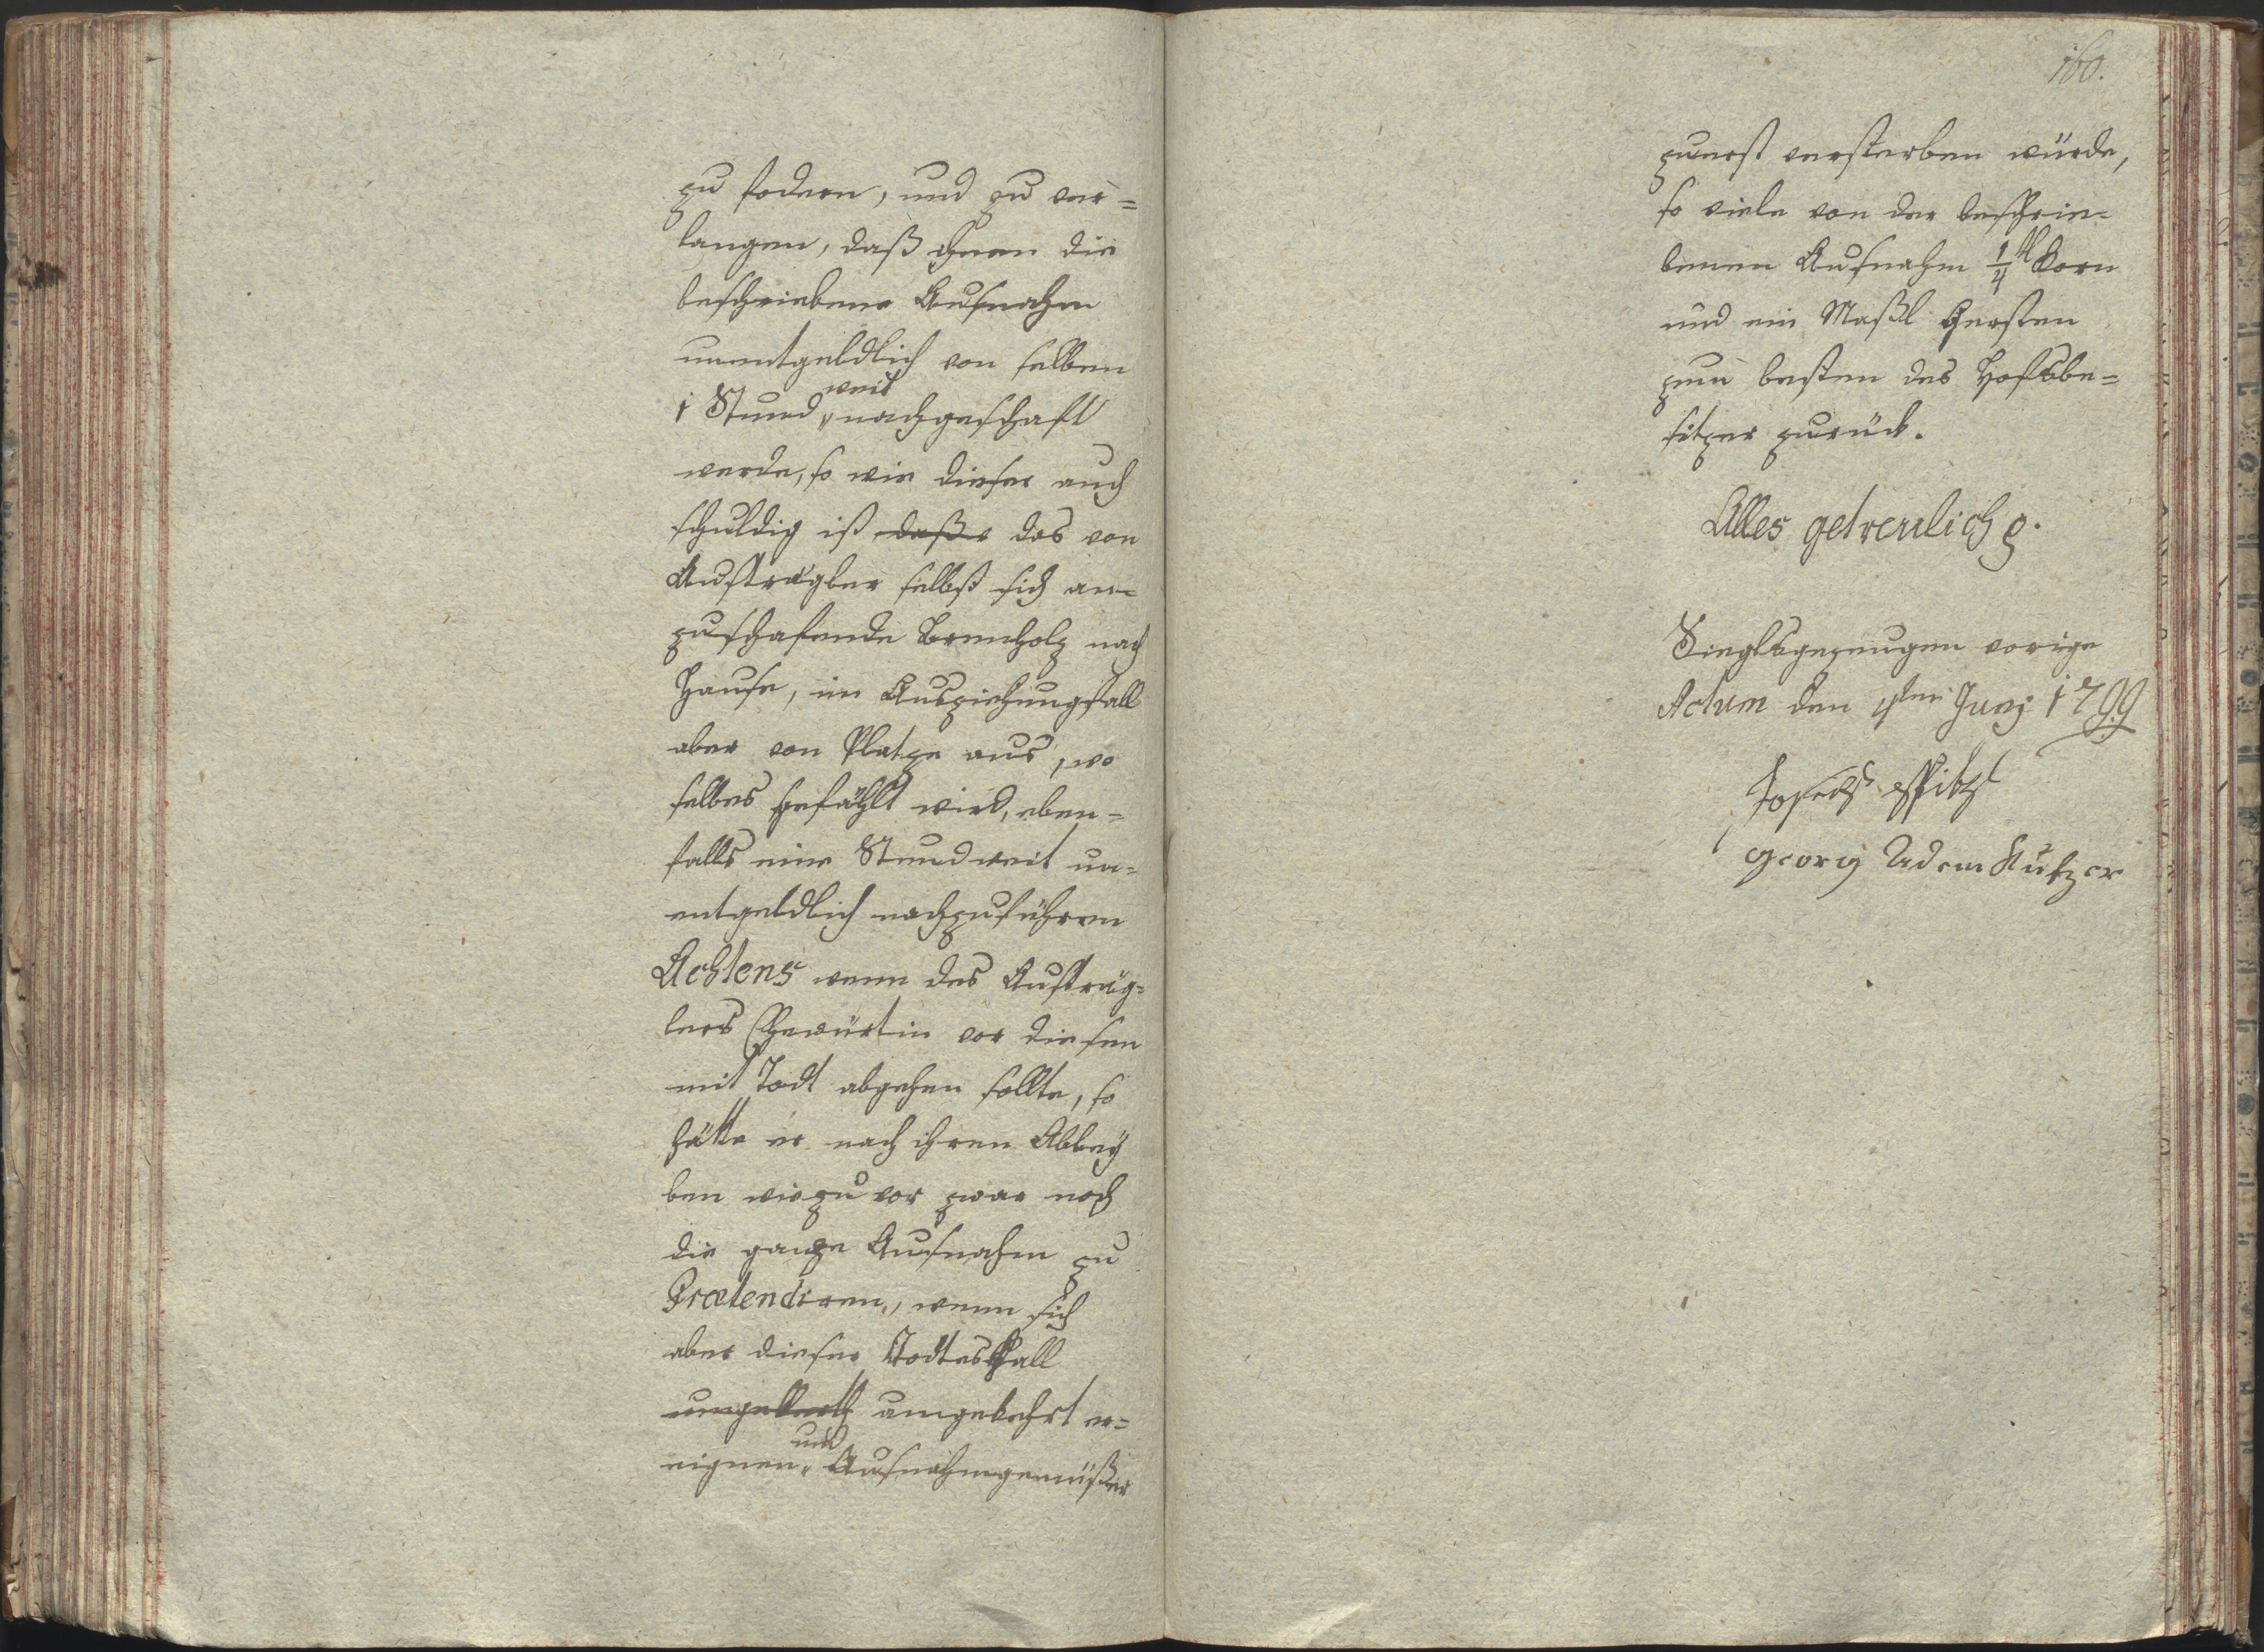 zu fodern, und zu ver=
langen, daß ihnen die
beschriebene Ausnahm
unentgeldlich von selben
1 Stund weit nachgeschaft
werde, so wie dieser auch
schuldig ist daße das von
Austrägler selbst sich an=
zuschafende Brennholz nach
Hause, im Ausziehungsfall
aber von Platze aus, wo
selbes gefählt wird, eben=
falls eine Stund weit un=
entgeldlich nachzuführen
Achtens wenn des Austräg=
lers Ehewürtin vor diesem
mit Todt abgehen sollte, so
hätte er nach ihren Ableÿ
ben wie zu vor zwar noch
die ganze Ausnahm zu
Prætendiren, wenn sich
aber dieser Todtesfall
umgekehrt er=
eignen, und Ausnahmgenüßer
160.
zuerst versterben würde,
so viele von der beschrie=
benen Ausnahm 1/4tl Korn
und ein Maßl Gersten
zum besten des Hofsbe=
sitzer zurück.
Alles getreulich
Sieglsgezeugen vorige
Actum den 4ten Junj 1799
Joseph Spitzl
Georg Adam Kutzer